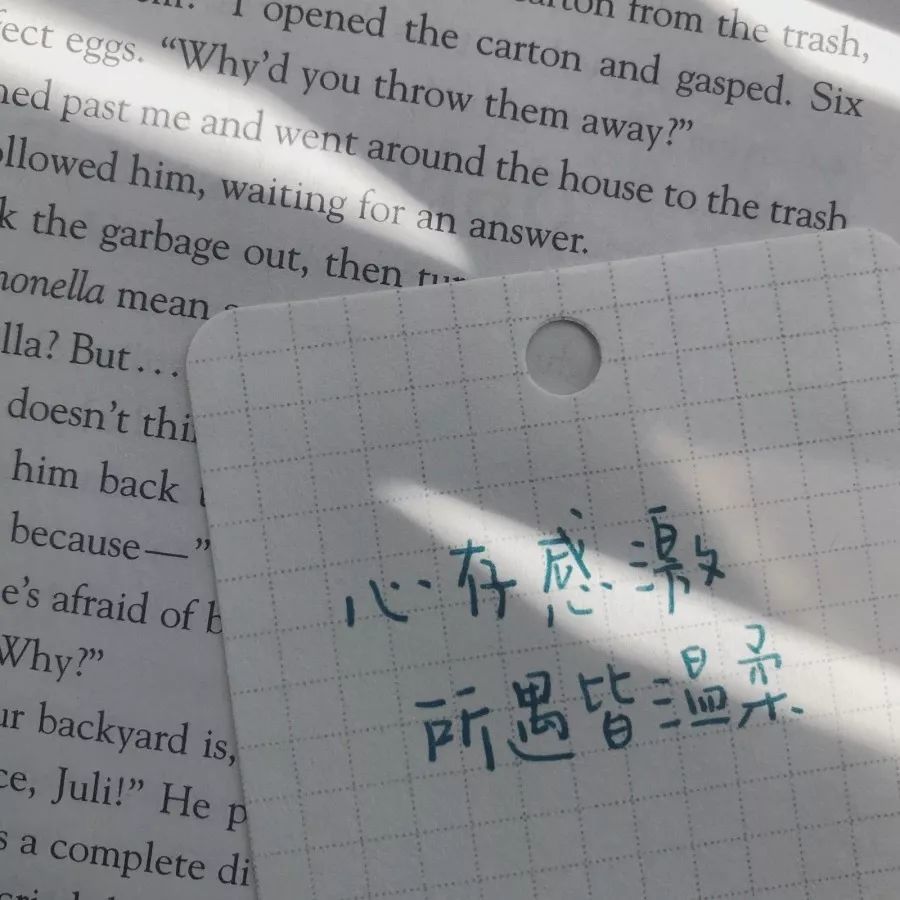 carton from the trash,
I opened the carton and gasped. Six
fect eggs. “Why’d you throw them away?”
ned past me and went around the house to the trash
ollowed him, waiting for an answer.
k the garbage out, then
monella mean
lla? But . . .
doesn’t thi
him back
because—”
e’s afraid of b
Why?”
ur backyard is,
ce, Juli!” He p
s a complete di
心存感激
所遇皆溫柔